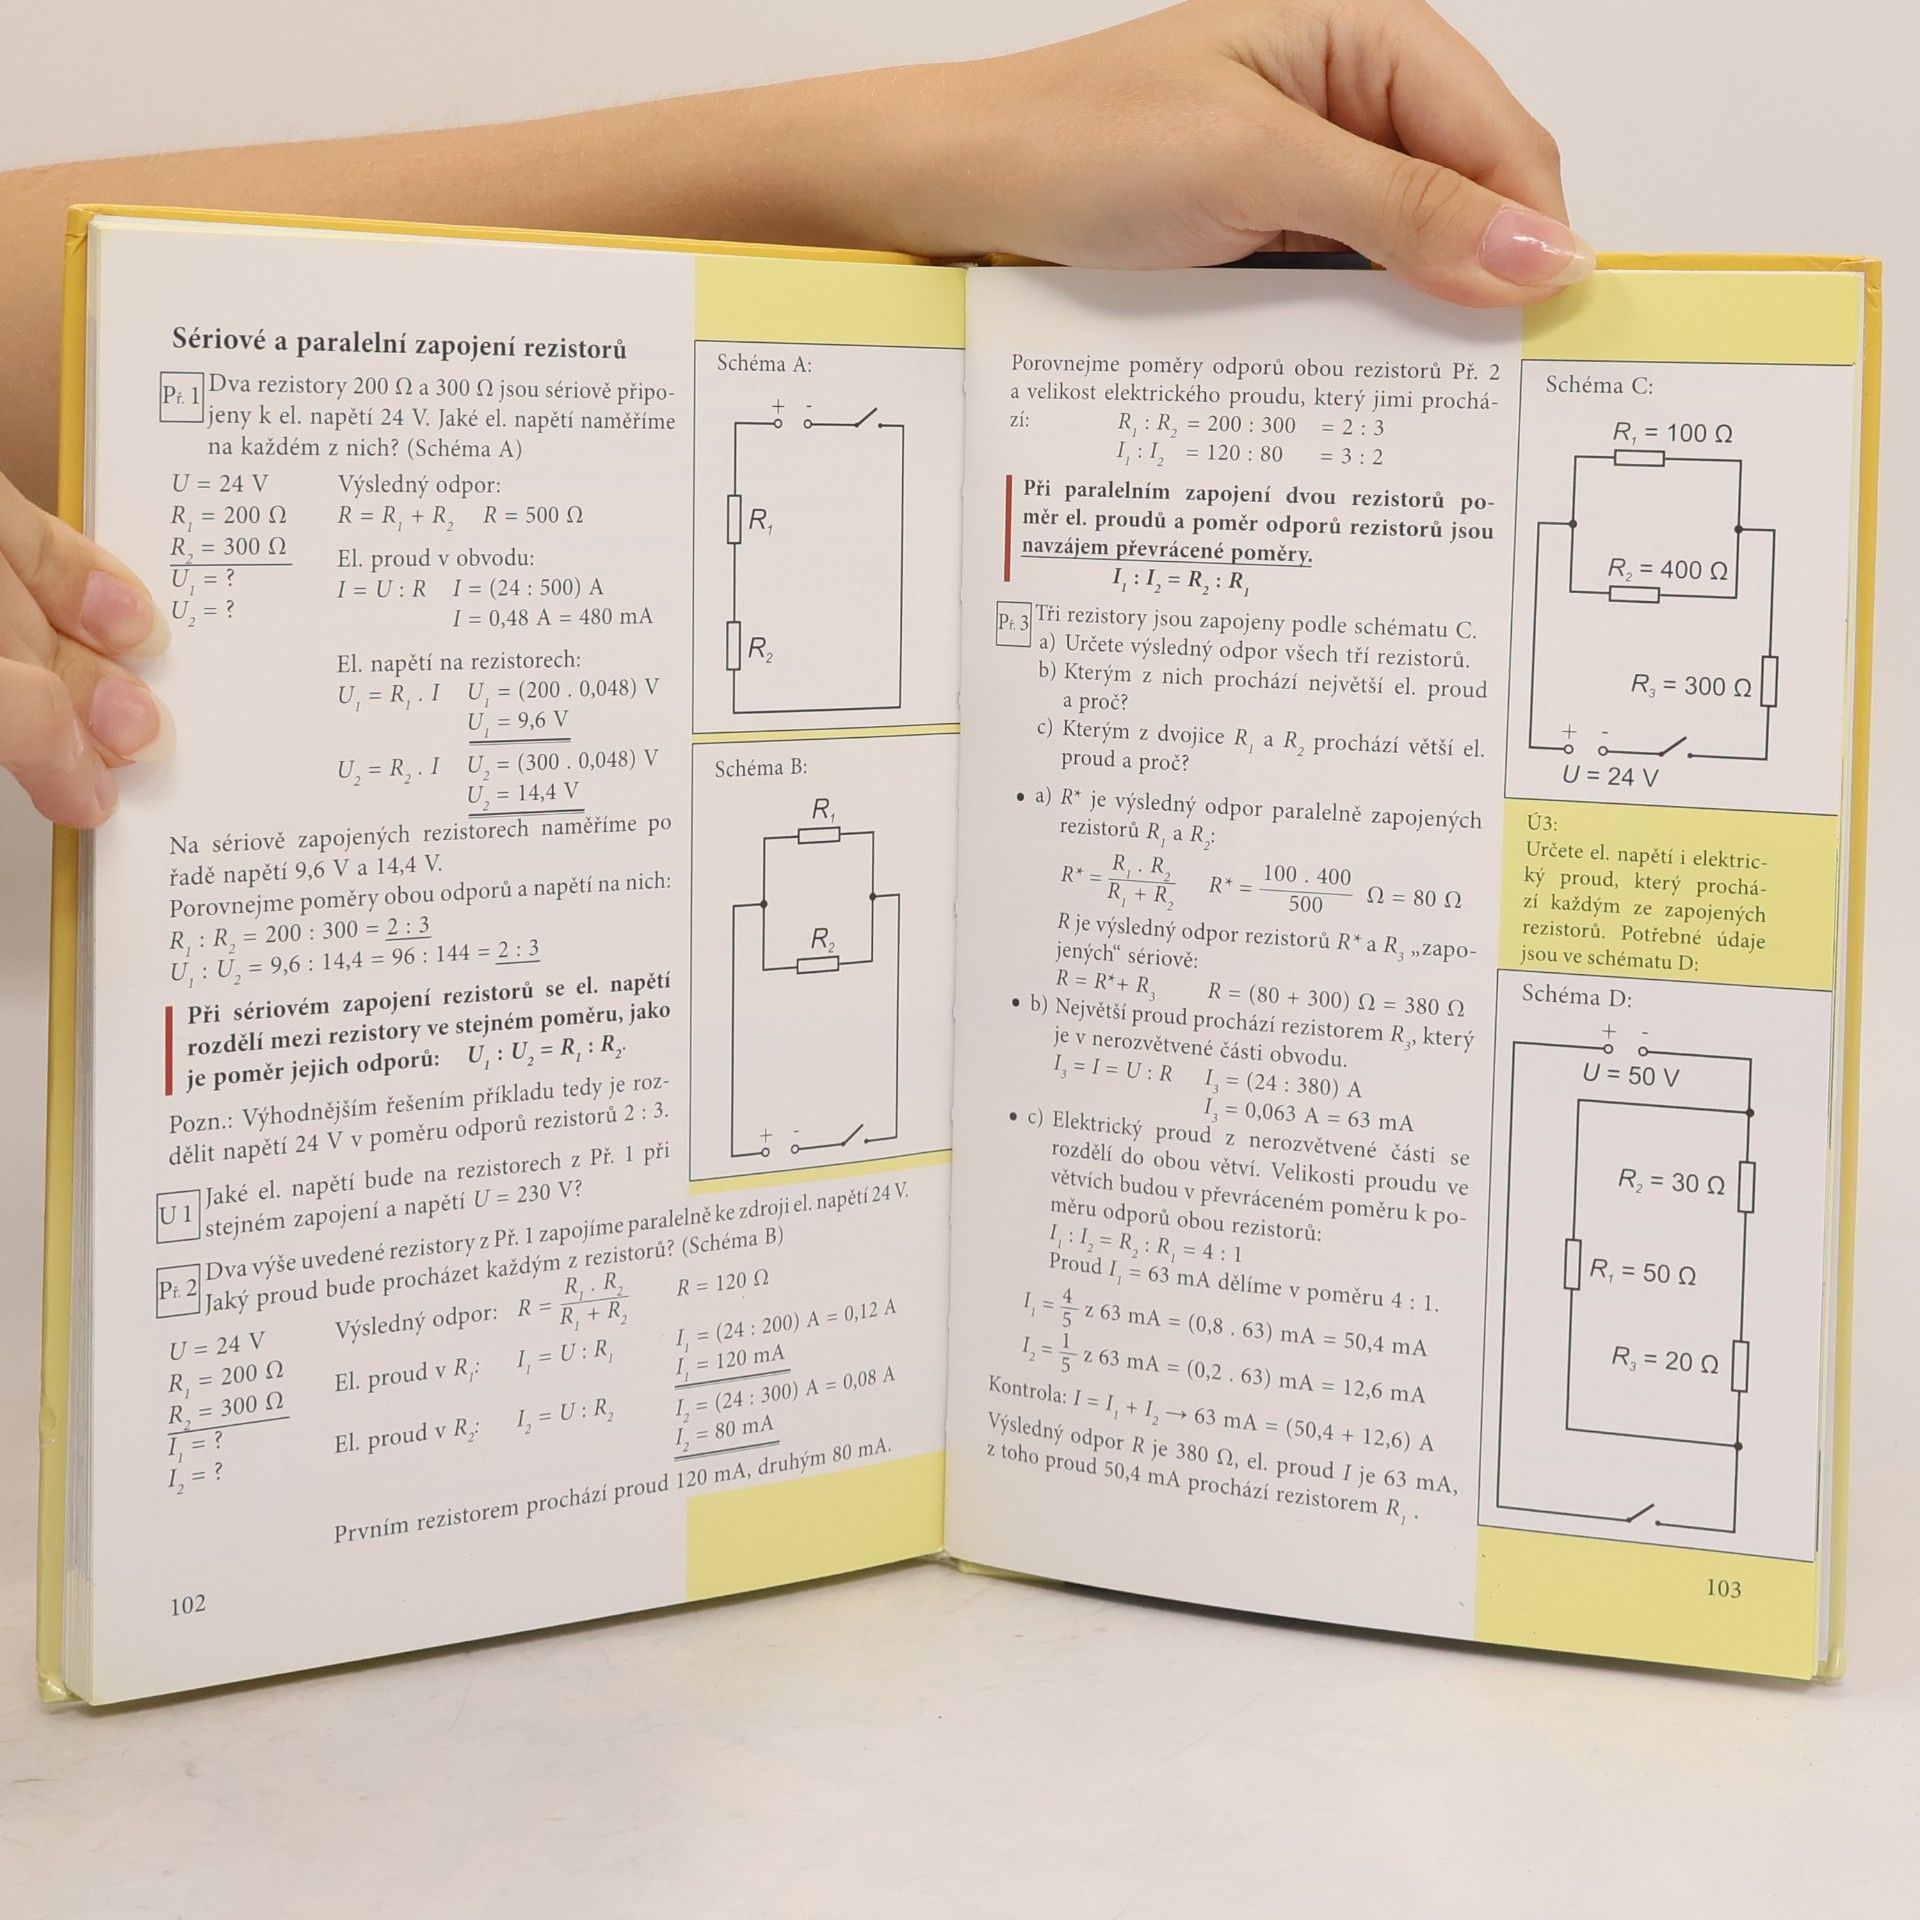 Sériové a paralelní zapojení rezistorů
Př. 1 Dva rezistory 200 Ω a 300 Ω jsou sériově připo-
jeny k el. napětí 24 V. Jaké el. napětí naměříme
na každém z nich? (Schéma A)
U = 24 V Výsledný odpor:
R₁ = 200 Ω R = R₁ + R₂ R = 500 Ω
R₂ = 300 Ω El. proud v obvodu:
U₁ = ? I = U : R I = (24 : 500) A
U₂ = ? I = 0,48 A = 480 mA
El. napětí na rezistorech:
U₁ = R₁ . I U₁ = (200 . 0,048) V
U₁ = 9,6 V
U₂ = R₂ . I U₂ = (300 . 0,048) V
U₂ = 14,4 V
Na sériově zapojených rezistorech naměříme po
řadě napětí 9,6 V a 14,4 V.
Porovnejme poměry obou odporů a napětí na nich:
R₁ : R₂ = 200 : 300 = 2 : 3
U₁ : U₂ = 9,6 : 14,4 = 96 : 144 = 2 : 3
Při sériovém zapojení rezistorů se el. napětí
rozdělí mezi rezistory ve stejném poměru, jako
je poměr jejich odporů: U₁ : U₂ = R₁ : R₂.
Pozn.: Výhodnějším řešením příkladu tedy je roz-
dělit napětí 24 V v poměru odporů rezistorů 2 : 3.
U 1 Jaké el. napětí bude na rezistorech z Př. 1 při
stejném zapojení a napětí U = 230 V?
Př. 2 Dva výše uvedené rezistory z Př. 1 zapojíme paralelně ke zdroji el. napětí 24 V.
Jaký proud bude procházet každým z rezistorů? (Schéma B)
U = 24 V Výsledný odpor: R = R₁ . R₂ / R₁ + R₂ R = 120 Ω
R₁ = 200 Ω El. proud v R₁: I₁ = U : R₁ I₁ = (24 : 200) A = 0,12 A
R₂ = 300 Ω I₁ = 120 mA
I₁ = ? El. proud v R₂: I₂ = U : R₂ I₂ = (24 : 300) A = 0,08 A
I₂ = ? I₂ = 80 mA
Prvním rezistorem prochází proud 120 mA, druhým 80 mA.
102
Schéma A:
+ -
R₁
R₂
Schéma B:
R₁
R₂
+ -
Porovnejme poměry odporů obou rezistorů Př. 2
a velikost elektrického proudu, který jimi prochá-
zí: R₁ : R₂ = 200 : 300 = 2 : 3
I₁ : I₂ = 120 : 80 = 3 : 2
Při paralelním zapojení dvou rezistorů po-
měr el. proudů a poměr odporů rezistorů jsou
navzájem převrácené poměry.
I₁ : I₂ = R₂ : R₁
Př. 3 Tři rezistory jsou zapojeny podle schématu C.
a) Určete výsledný odpor všech tří rezistorů.
b) Kterým z nich prochází největší el. proud
a proč?
c) Kterým z dvojice R₁ a R₂ prochází větší el.
proud a proč?
• a) R* je výsledný odpor paralelně zapojených
rezistorů R₁ a R₂:
R* = R₁ . R₂ / R₁ + R₂ R* = 100 . 400 / 500 Ω = 80 Ω
R je výsledný odpor rezistorů R* a R₃ „zapo-
jených“ sériově:
R = R*+ R₃ R = (80 + 300) Ω = 380 Ω
• b) Největší proud prochází rezistorem R₃, který
je v nerozvětvené části obvodu.
I₃ = I = U : R I₃ = (24 : 380) A
I₃ = 0,063 A = 63 mA
• c) Elektrický proud z nerozvětvené části se
rozdělí do obou větví. Velikosti proudu ve
větvích budou v převráceném poměru k po-
měru odporů obou rezistorů:
I₁ : I₂ = R₂ : R₁ = 4 : 1
Proud I₁ = 63 mA dělíme v poměru 4 : 1.
I₁ = 4/5 z 63 mA = (0,8 . 63) mA = 50,4 mA
I₂ = 1/5 z 63 mA = (0,2 . 63) mA = 12,6 mA
Kontrola: I = I₁ + I₂ → 63 mA = (50,4 + 12,6) A
Výsledný odpor R je 380 Ω, el. proud I je 63 mA,
z toho proud 50,4 mA prochází rezistorem R₁ .
Schéma C:
R₁ = 100 Ω
R₂ = 400 Ω
R₃ = 300 Ω
+ -
U = 24 V
Ú3:
Určete el. napětí i elektric-
ký proud, který prochá-
zí každým ze zapojených
rezistorů. Potřebné údaje
jsou ve schématu D:
Schéma D:
+ -
U = 50 V
R₂ = 30 Ω
R₁ = 50 Ω
R₃ = 20 Ω
103